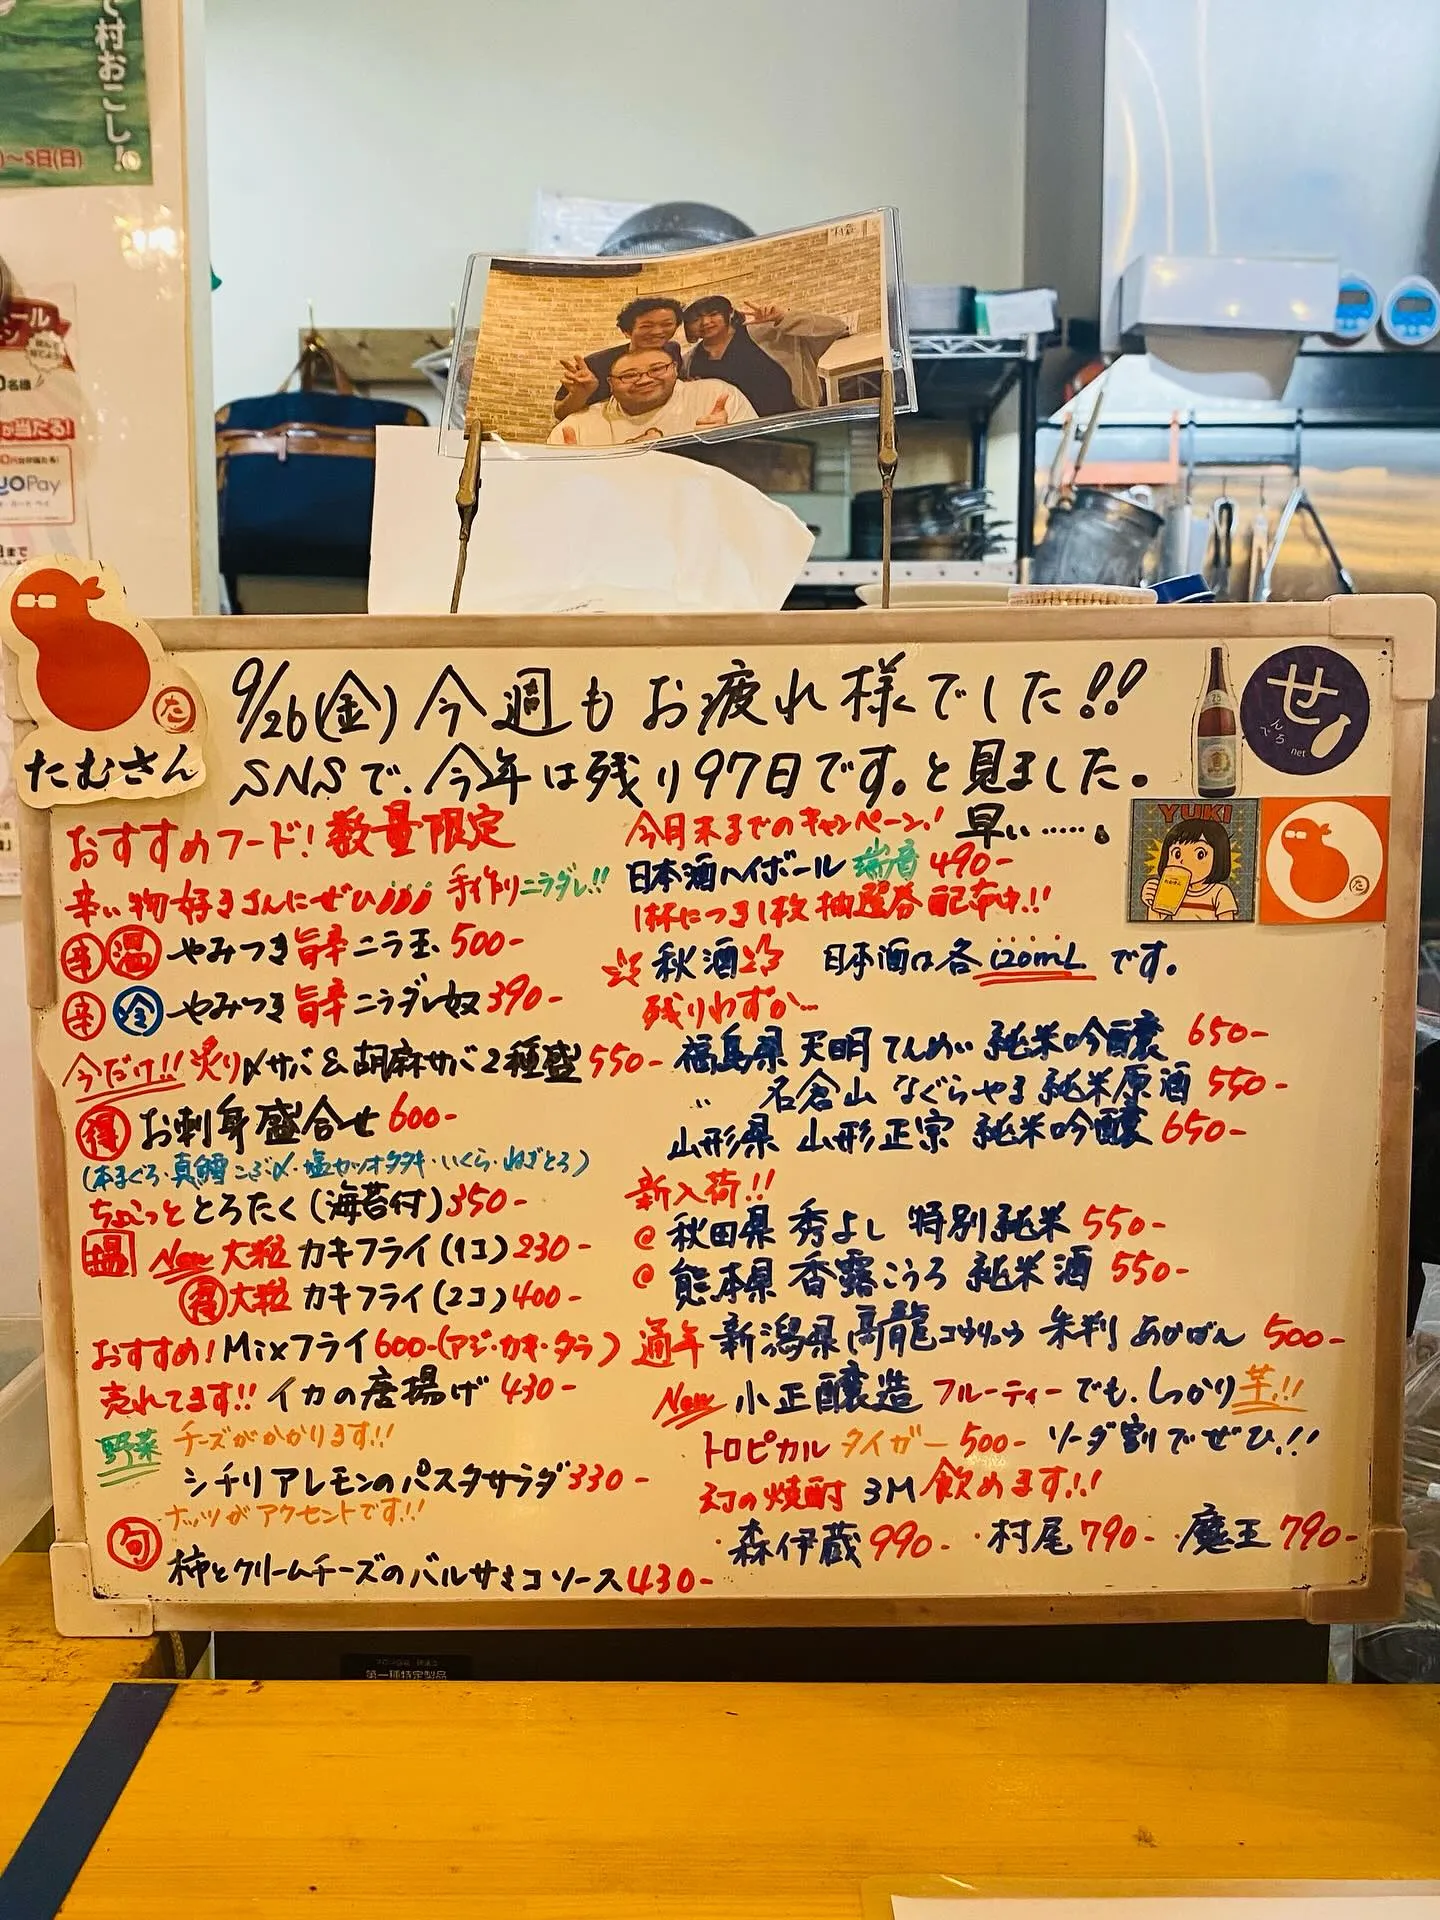 村おこし!
〜5日(日)
0名様
が当たる!
Pay
まで
たむさん
た
9/26(金)今週もお疲れ様でした!!
SNSで、今年は残り97日です。と見ました。
早い……。
せ
んべろ
net
YUKI
おすすめフード!数量限定
辛い物好きさんにぜひ!!! 手作りニラダレ!!
辛 温 やみつき旨辛ニラ玉 500-
辛 冷 やみつき旨辛ニラダレ奴 390-
今だけ!! 炙り〆サバ&胡麻サバ2種盛 550-
得 お刺身盛合せ 600-
(本まぐろ・真鯛こぶ〆・塩カツオタタキ・いくら・ねぎとろ)
ちょこっと とろたく(海苔付)350-
揚 New 大粒 カキフライ(1コ)230-
得 大粒 カキフライ(2コ)400-
おすすめ!Mixフライ 600-(アジ・カキ・タラ)
売れてます!! イカの唐揚げ 430-
野菜 チーズがかかります!!
シチリアレモンのパスタサラダ 330-
ナッツがアクセントです!!
旬
柿とクリームチーズのバルサミコソース 430-
今月末までのキャンペーン!
日本酒ハイボール 瑞音 490-
1杯につき1枚抽選券配布中!!
秋酒 日本酒は各120mLです。
残りわずか…
福島県 天明 てんめい 純米吟醸 650-
〃 石倉山 なぐらやま 純米原酒 550-
山形県 山形正宗 純米吟醸 650-
新入荷!!
@ 秋田県 秀よし 特別純米 550-
@ 熊本県 香露こうろ 純米酒 550-
通年 新潟県 高龍コウリュウ 朱判 あかばん 500-
New 小正醸造 フルーティーでも、しっかり芋!!
トロピカル タイガー 500- ソーダ割でぜひ!!
幻の焼酎 3M 飲めます!!
・森伊蔵 990- ・村尾 790- ・魔王 790-
第一種特定製品